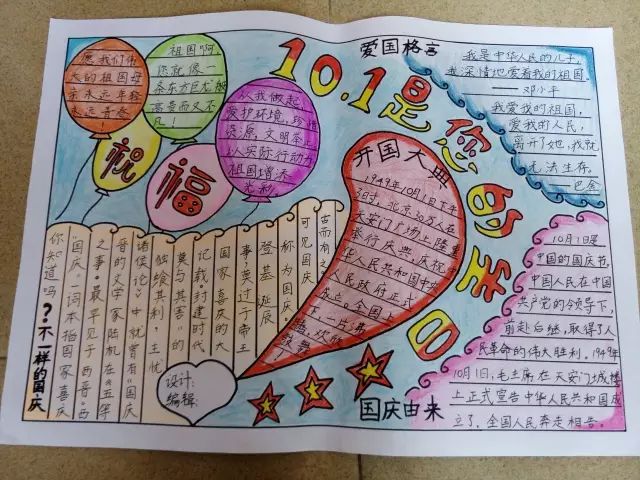 10.1是您的生日
愿我们伟
大的祖国母
亲永远年轻
永远青春
！
祖国啊，
您就像一
条东方巨龙那
高贵而又不
凡！
从我做起，
爱护环境，珍惜
资源，文明举止，
以实际行动为
祖国增添
光彩。
祝
福
爱国格言
我是中华人民的儿子，
我深情地爱着我的祖国。
——邓小平
我爱我的祖国，
爱我的人民，
离开了她，我就
无法生存。
——巴金
开国大典
1949年10月1日下午
3时，北京30万人在
天安门广场上隆重
举行庆典，庆祝中
华人民共和国中央
人民政府正式
成立。全国上
下一片载
歌
舞
？不一样的国庆
你知道吗
“国庆”一词本指国家喜庆
之事，最早见于西晋。西
晋的文学家陆机在《五等
诸侯论》中就曾有“国庆
独飨其利，主忧
莫与其害”的
记载，封建时代
国家喜庆的大
事莫过于帝王
登基、诞辰
称为国庆
可见国庆
古而有之
设计：
编辑：
10月1日是
中国的国庆节，
中国人民在中国
共产党的领导下，
前赴后继，取得了人
民革命的伟大胜利。1949年
10月1日，毛主席在天安门城楼
上正式宣告中华人民共和国成
立了，全国人民奔走相告。
国庆由来